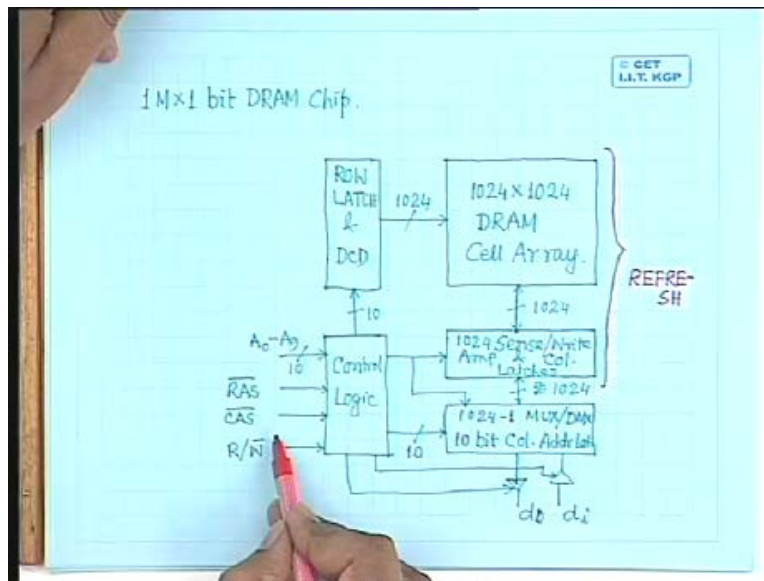 © CET
I.I.T. KGP
1M×1 bit DRAM Chip.
ROW
LATCH
&
DCD
1024
1024×1024
DRAM
Cell Array.
REFRE-
SH
10
1024
A₀-A₉
10
Control
Logic
1024 Sense/Write
Amp & Col.
Latches
1024
R̅A̅S̅
C̅A̅S̅
R/W̅
10
1024-1 MUX/
10 bit Col. Addr Lat
d₀
dᵢ